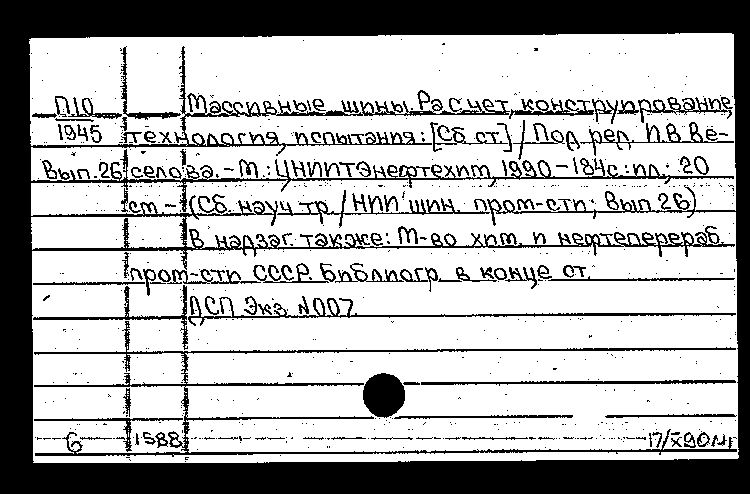 П10 Массивные шины. Расчет, конструирование,
1945 технология, испытания: [Сб. ст.] / Под ред. И.В. Ве-
Вып.26 селова. - М.: ЦНИИТЭнефтехим, 1990 - 184с.: ил.; 20
см. - (Сб. науч тр. / НИИ шин. пром-сти; Вып. 26)
В надзаг. также: М-во хим. и нефтеперераб.
пром-сти СССР. Библиогр. в конце ст.
ДСП Экз. N007.
6 1588 17/X90